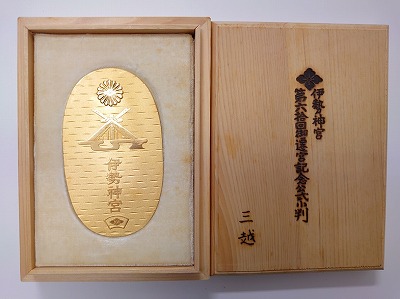 伊勢神宮
伊勢神宮
第六拾回御遷宮記念小判
三越